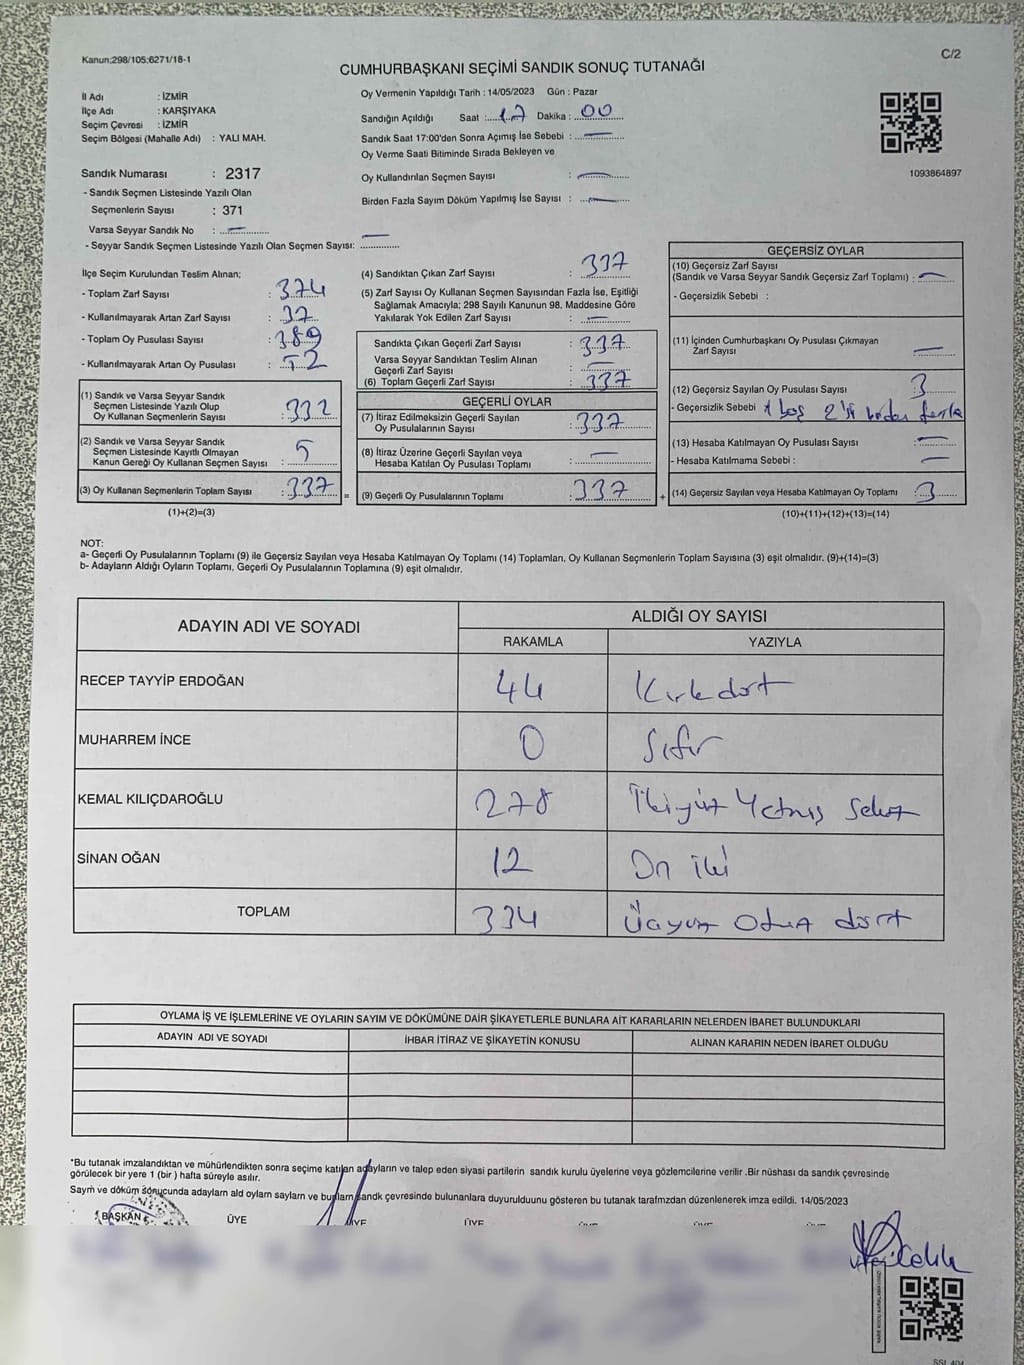 Kanun:298/105;6271/18-1
C/2
CUMHURBAŞKANI SEÇİMİ SANDIK SONUÇ TUTANAĞI
İl Adı : İZMİR
İlçe Adı : KARŞIYAKA
Seçim Çevresi : İZMİR
Seçim Bölgesi (Mahalle Adı) : YALI MAH.
Sandık Numarası : 2317
- Sandık Seçmen Listesinde Yazılı Olan
Seçmenlerin Sayısı : 371
Varsa Seyyar Sandık No : —
- Seyyar Sandık Seçmen Listesinde Yazılı Olan Seçmen Sayısı: —
Oy Vermenin Yapıldığı Tarih : 14/05/2023 Gün : Pazar
Sandığın Açıldığı Saat : 17 Dakika : 00
Sandık Saat 17:00'den Sonra Açımış İse Sebebi : —
Oy Verme Saati Bitiminde Sırada Bekleyen ve
Oy Kullandırılan Seçmen Sayısı : —
Birden Fazla Sayım Döküm Yapılmış İse Sayısı : —
1093864897
İlçe Seçim Kurulundan Teslim Alınan;
- Toplam Zarf Sayısı : 374
- Kullanılmayarak Artan Zarf Sayısı : 37
- Toplam Oy Pusulası Sayısı : 389
- Kullanılmayarak Artan Oy Pusulası : 52
(1) Sandık ve Varsa Seyyar Sandık
Seçmen Listesinde Yazılı Olup
Oy Kullanan Seçmenlerin Sayısı : 332
(2) Sandık ve Varsa Seyyar Sandık
Seçmen Listesinde Kayıtlı Olmayan
Kanun Gereği Oy Kullanan Seçmen Sayısı : 5
(3) Oy Kullanan Seçmenlerin Toplam Sayısı : 337 =
(1)+(2)=(3)
(4) Sandıktan Çıkan Zarf Sayısı : 337
(5) Zarf Sayısı Oy Kullanan Seçmen Sayısından Fazla İse, Eşitliği
Sağlamak Amacıyla; 298 Sayılı Kanunun 98. Maddesine Göre
Yakılarak Yok Edilen Zarf Sayısı : —
Sandıkta Çıkan Geçerli Zarf Sayısı : 337
Varsa Seyyar Sandıktan Teslim Alınan
Geçerli Zarf Sayısı : —
(6) Toplam Geçerli Zarf Sayısı : 337
GEÇERLİ OYLAR
(7) İtiraz Edilmeksizin Geçerli Sayılan
Oy Pusulalarının Sayısı : 337
(8) İtiraz Üzerine Geçerli Sayılan veya
Hesaba Katılan Oy Pusulası Toplamı : —
(9) Geçerli Oy Pusulalarının Toplamı : 337 +
GEÇERSİZ OYLAR
(10) Geçersiz Zarf Sayısı
(Sandık ve Varsa Seyyar Sandık Geçersiz Zarf Toplamı) : —
- Geçersizlik Sebebi :
(11) İçinden Cumhurbaşkanı Oy Pusulası Çıkmayan
Zarf Sayısı —
(12) Geçersiz Sayılan Oy Pusulası Sayısı 3
- Geçersizlik Sebebi 1 boş 2'si birden fazla
(13) Hesaba Katılmayan Oy Pusulası Sayısı —
- Hesaba Katılmama Sebebi : —
(14) Geçersiz Sayılan veya Hesaba Katılmayan Oy Toplamı : 3
(10)+(11)+(12)+(13)=(14)
NOT:
a- Geçerli Oy Pusulalarının Toplamı (9) ile Geçersiz Sayılan veya Hesaba Katılmayan Oy Toplamı (14) Toplamları, Oy Kullanan Seçmenlerin Toplam Sayısına (3) eşit olmalıdır. (9)+(14)=(3)
b- Adayların Aldığı Oyların Toplamı, Geçerli Oy Pusulalarının Toplamına (9) eşit olmalıdır.
ADAYIN ADI VE SOYADI
ALDIĞI OY SAYISI
RAKAMLA YAZIYLA
RECEP TAYYİP ERDOĞAN 44 Kırkdört
MUHARREM İNCE 0 Sıfır
KEMAL KILIÇDAROĞLU 278 İkiyüz Yetmiş Sekiz
SİNAN OĞAN 12 On iki
TOPLAM 334 Üçyüz Otuz dört
OYLAMA İŞ VE İŞLEMLERİNE VE OYLARIN SAYIM VE DÖKÜMÜNE DAİR ŞİKAYETLERLE BUNLARA AİT KARARLARIN NELERDEN İBARET BULUNDUKLARI
ADAYIN ADI VE SOYADI İHBAR İTİRAZ VE ŞİKAYETİN KONUSU ALINAN KARARIN NEDEN İBARET OLDUĞU
*Bu tutanak imzalandıktan ve mühürlendikten sonra seçime katılan adayların ve talep eden siyasi partilerin sandık kurulu üyelerine veya gözlemcilerine verilir .Bir nüshası da sandık çevresinde
görülecek bir yere 1 (bir ) hafta süreyle asılır.
Sayım ve döküm sonucunda adayların ald oyların sayların ve bunların sandk çevresinde bulunanlara duyurulduunu gösteren bu tutanak tarafmzdan düzenlenerek imza edildi. 14/05/2023
BAŞKAN ÜYE ÜYE ÜYE
SSI 404